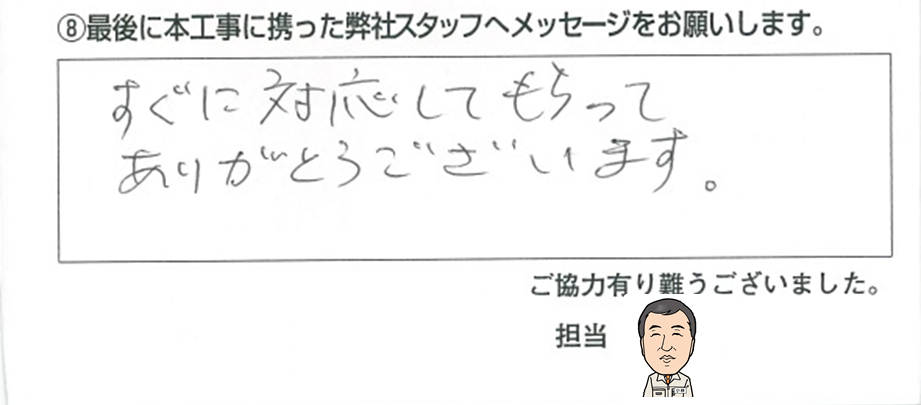 ⑧最後に本工事に携った弊社スタッフへメッセージをお願いします。
すぐに対応してもらって
ありがとうございます。
ご協力有り難うございました。
担当